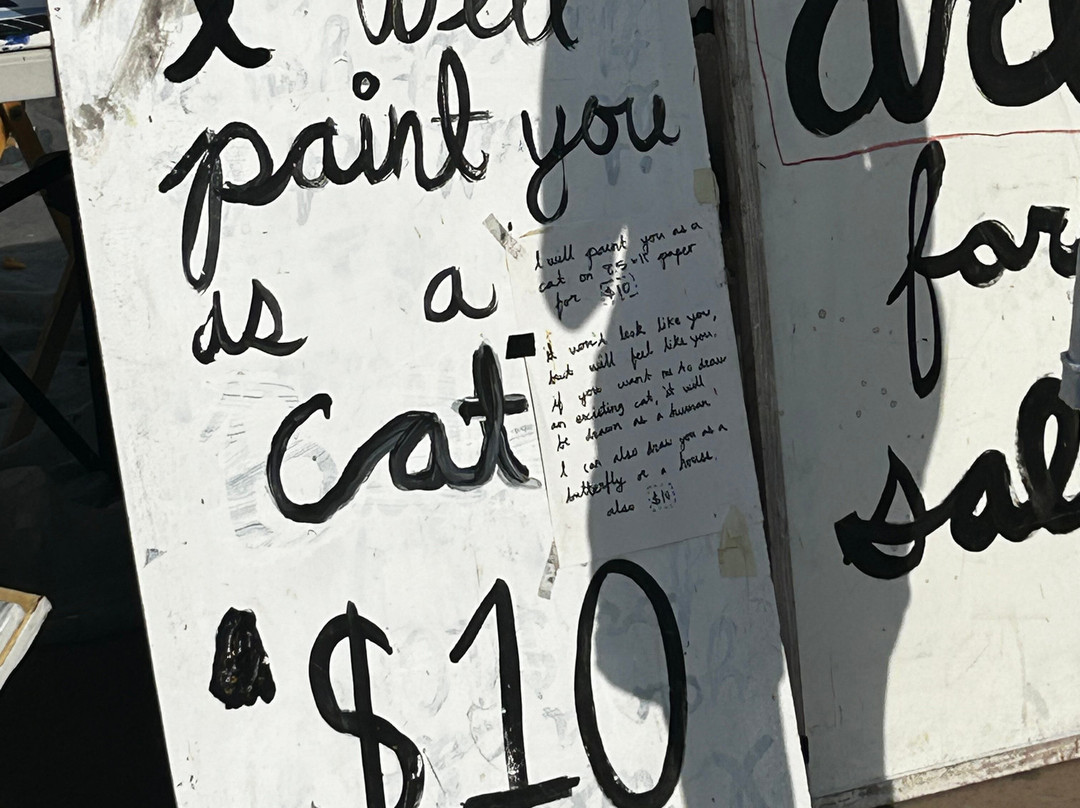 I will
paint you
as a
cat
$10
I will paint you as a
cat on 8.5 x 11 paper
for $10
It won't look like you,
but will feel like you.
if you want me to draw
an existing cat, it will
be drawn as a human!
I can also draw you as a
butterfly or a horse.
also $10
for
sal